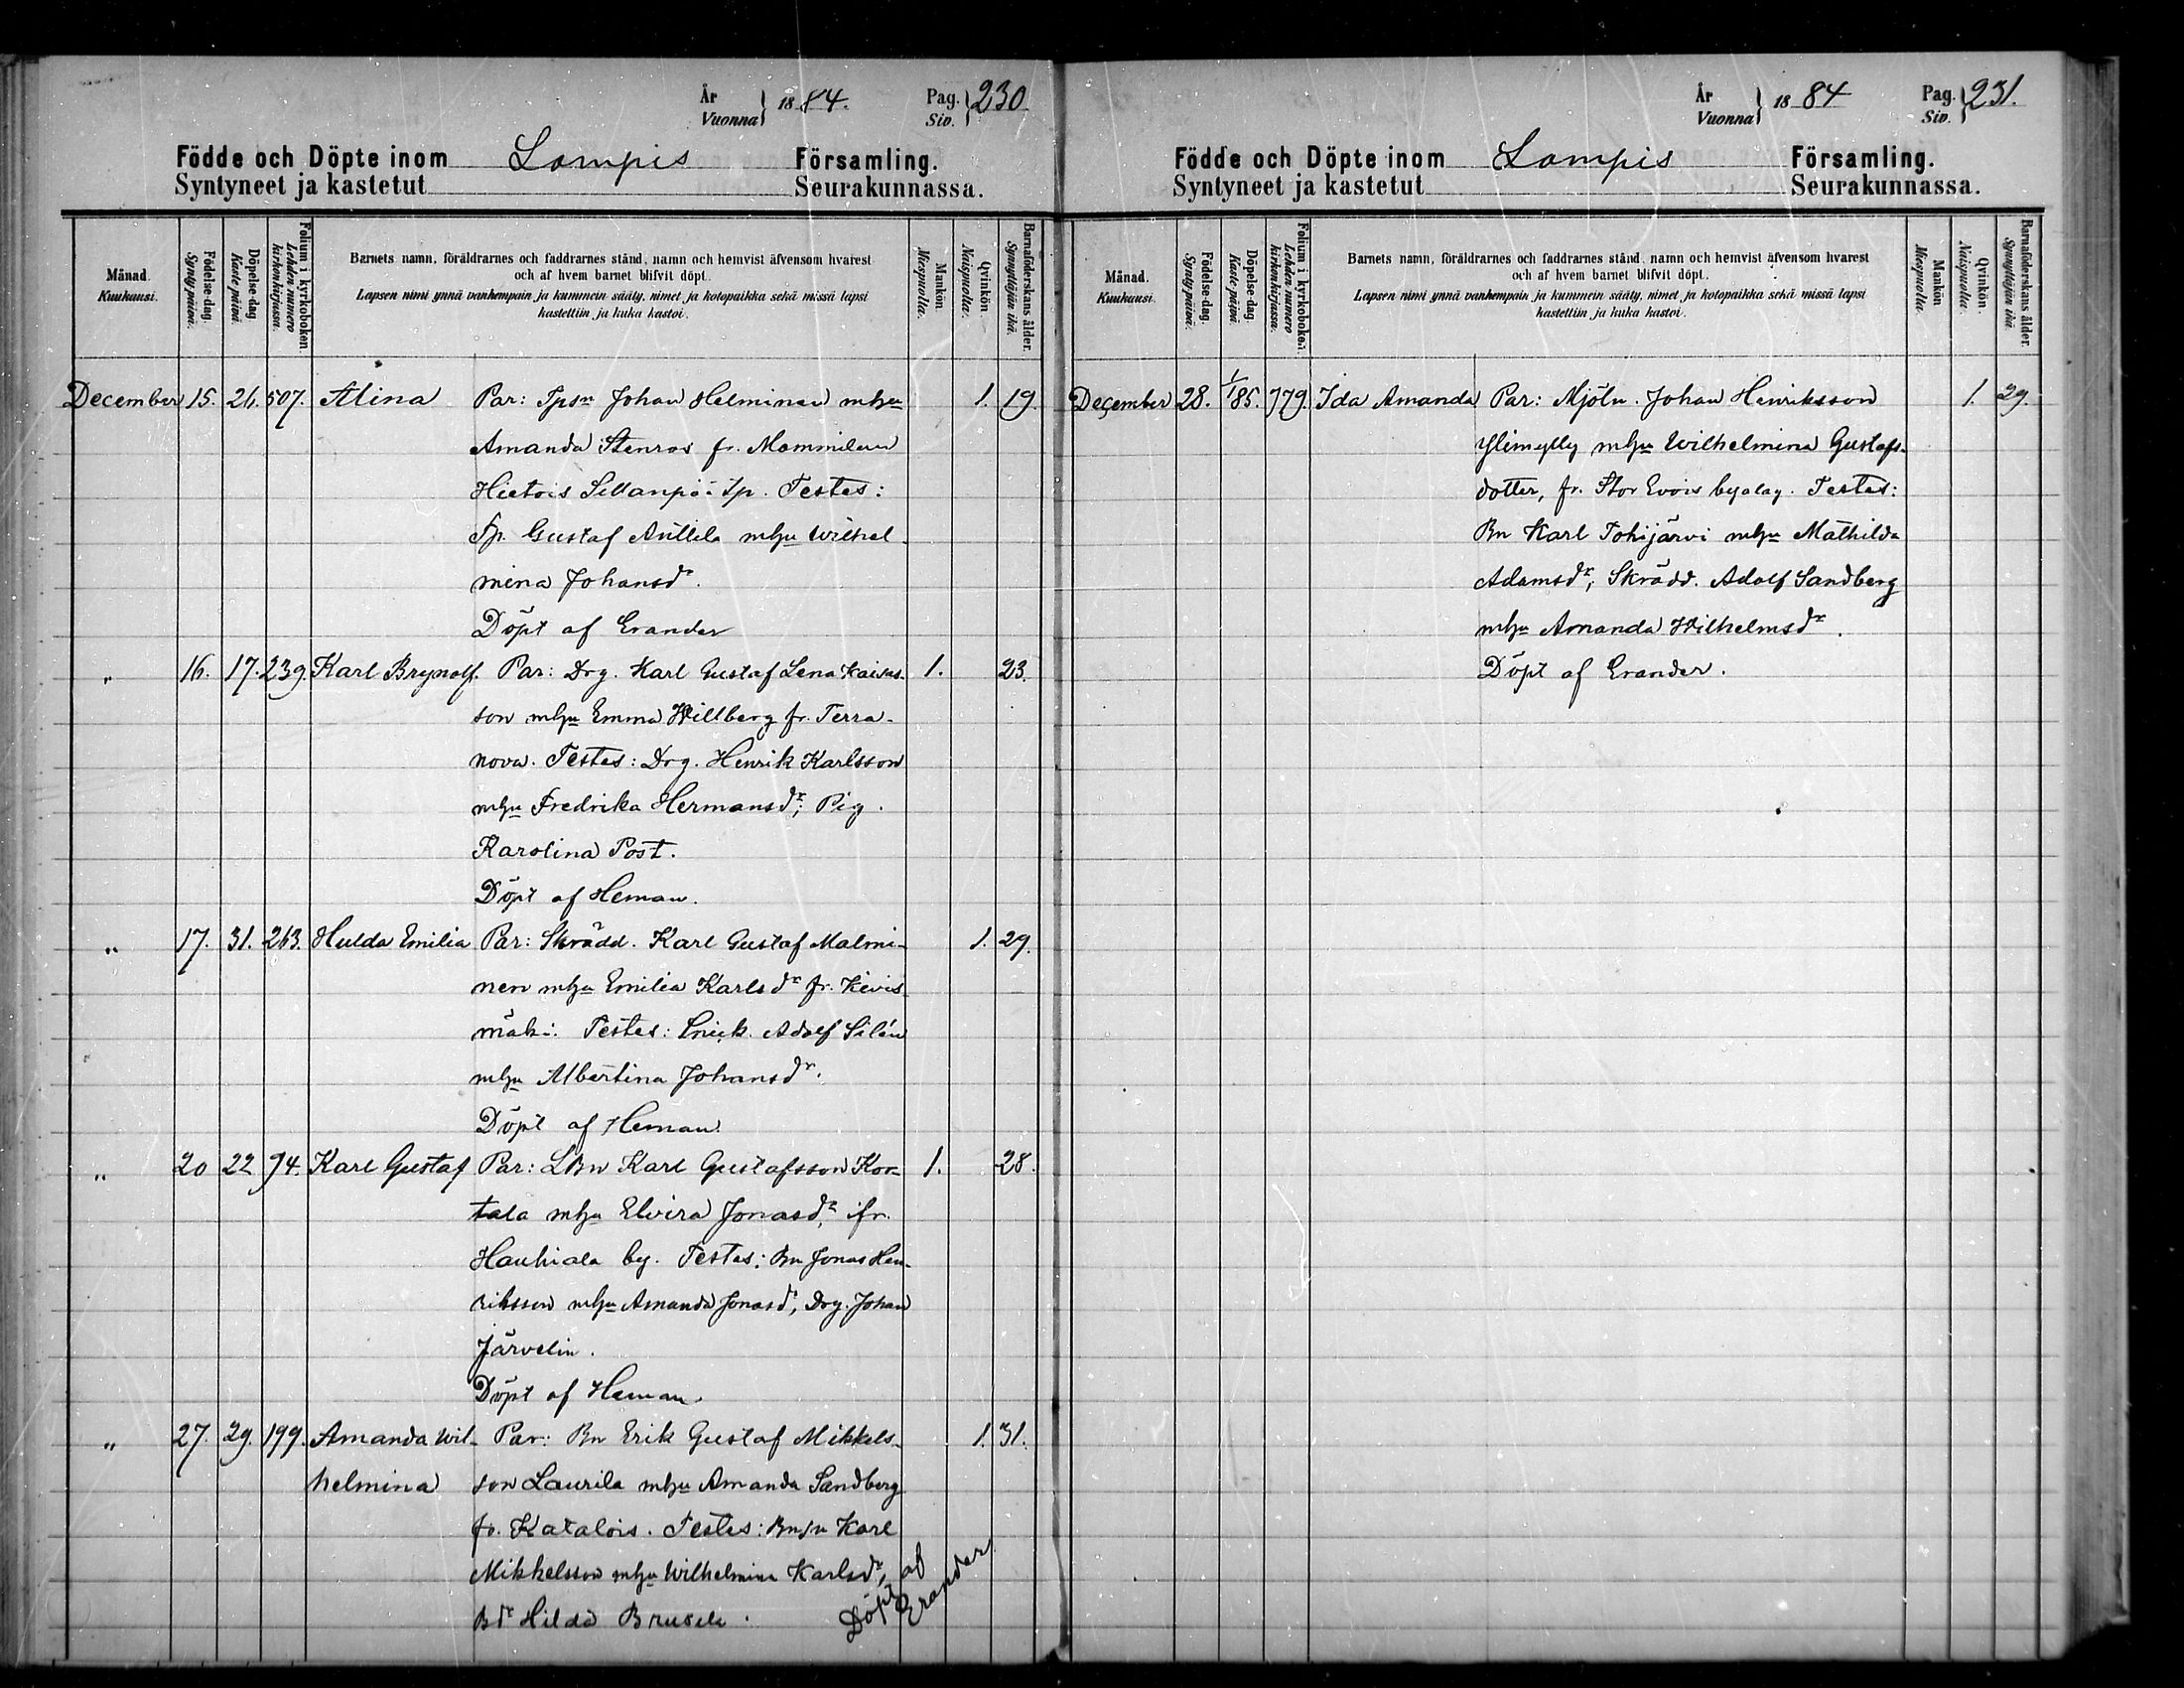 År
Vuonna } 1884. Pag.
Siv. } 230.
Födde och Döpte inom Lampis Församling.
Syntyneet ja kastetut Seurakunnassa.
Månad.
Kuukausi.
Födelse-dag.
Synty päivä.
Döpelse-dag
Kaste päivä.
Folium i kyrkoboken.
Lehden numero
kirkonkirjassa.
Barnets namn, föräldrarnes och faddrarnes stånd, namn och hemvist äfvensom hvarest
och af hvem barnet blifvit döpt.
Lapsen nimi ynnä vanhempain ja kummein sääty, nimet ja kotopaikka sekä missä lapsi
kastettiin ja kuka kastoi.
Mankön.
Miespuolta.
Qvinkön
Naispuolta.
Barnaföderskans ålder.
Synnyttäjän ikä.
December 15. 26. 507. Alina Par: Tpsn Johan Helminen mhu 1. 19.
Amanda Stenros fr. Mommilan
Hietois Sillanpää tp. Testes:
Tp. Gustaf Anttila mhu Wilhel-
mina Johansdr.
Döpt af Erander
" 16. 17. 239. Karl Brynolf. Par: Drg. Karl Gustaf Lena Kaisas- 1. 23.
son mhu Emma Willberg fr. Terra-
nova. Testes: Drg. Henrik Karlsson
mhu Fredrika Hermansdr; Pig.
Karolina Post.
Döpt af Heman.
" 17. 31. 263. Hulda Emilia Par: Skrädd. Karl Gustaf Malmi- 1. 29.
nen mhu Emilia Karlsdr fr. Kivis-
mäki. Testes: Snick. Adolf Silén
mhu Albertina Johansdr.
Döpt af Heman.
" 20 22 94. Karl Gustaf Par: LBn Karl Gustafsson Kor- 1. 28.
tala mhu Elvira Jonasdr, ifr.
Hauhiala by. Testes: Bn Jonas Hen-
riksson mhu Amanda Jonasdr, Drg. Johan
Järvelin.
Döpt af Heman.
" 27. 29. 199. Amanda Wil- Par: Bn Erik Gustaf Mikkels- 1. 31.
helmina son Laurila mhu Amanda Sandberg
fr. Katalois. Testes: Bnsn Karl
Mikkelsson mhu Wilhelmina Karlsdr,
Bdr Hilda Brusila. Döpt af
Erander
År
Vuonna } 1884 Pag.
Siv. } 231.
Födde och Döpte inom Lampis Församling.
Syntyneet ja kastetut Seurakunnassa.
Månad.
Kuukausi.
Födelse-dag.
Synty päivä.
Döpelse-dag
Kaste päivä.
Folium i kyrkoboken.
Lehden numero
kirkonkirjassa.
Barnets namn, föräldrarnes och faddrarnes stånd, namn och hemvist äfvensom hvarest
och af hvem barnet blifvit döpt.
Lapsen nimi ynnä vanhempain ja kummein sääty, nimet ja kotopaikka sekä missä lapsi
kastettiin ja kuka kastoi.
Mankön
Miespuolta.
Qvinkön.
Naispuolta.
Barnaföderskans ålder.
Synnyttäjän ikä.
December 28. 1/1 85. 779. Ida Amanda Par: Mjöln. Johan Henriksson 1. 29.
Ylimylly mhu Wilhelmina Gustafs-
dotter, fr. Stor Evois byalag. Testes:
Bn Karl Tohijärvi mhu Mathilda
Adamsdr; Skrädd. Adolf Sandberg
mhu Amanda Wilhelmsdr.
Döpt af Erander.